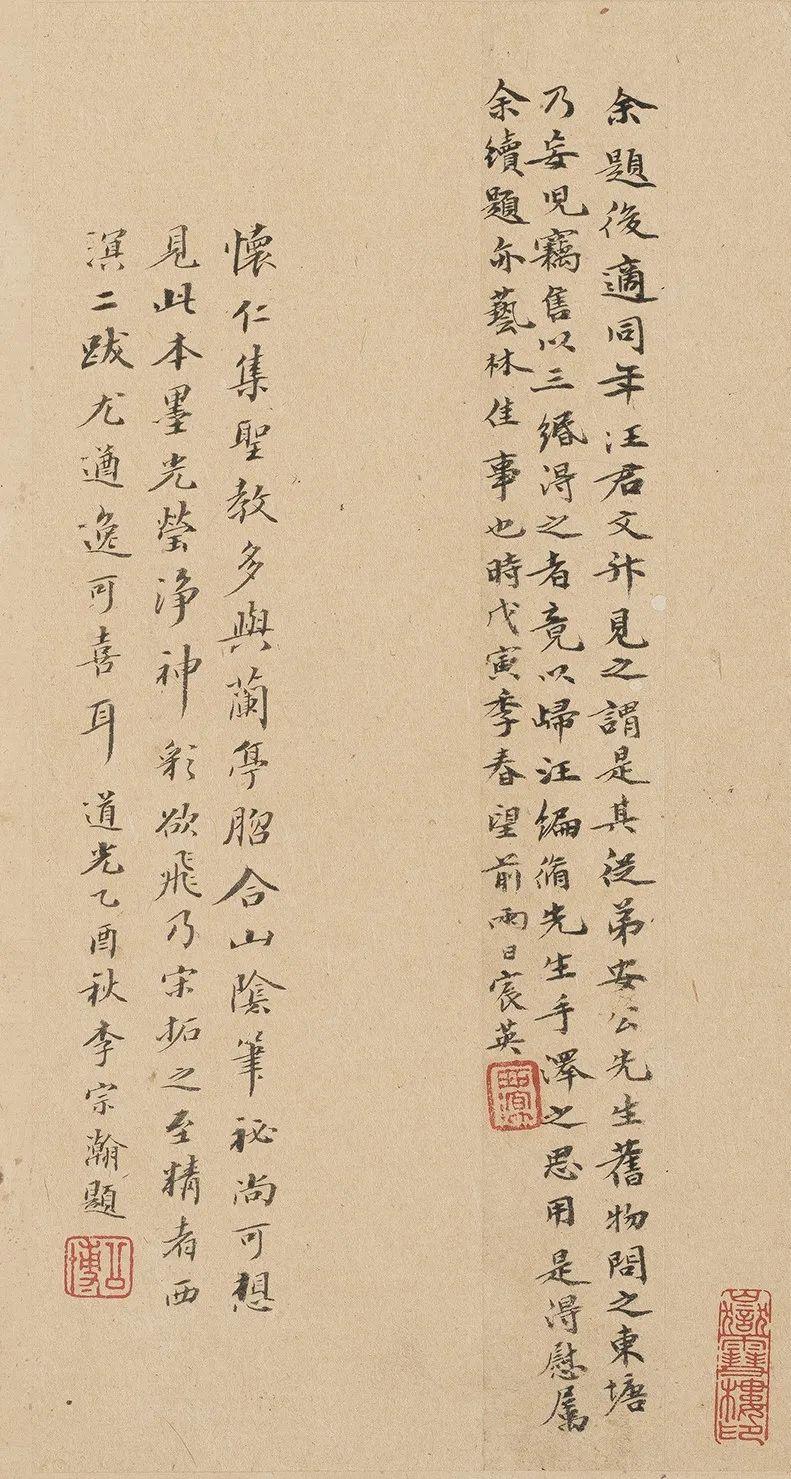 余題後適同年汪君文升見之謂是其從弟安公先生舊物問之東塘
乃妄児竊售以三緡得之者竟以歸汪編脩先生手澤之思用是得慰属
余續題亦藝林佳事也時戊寅季春望前兩日宸英
西溟
懷仁集聖教多與蘭亭脗合山陰筆祕尚可想
見此本墨光瑩淨神彩欲飛乃宋拓之至精者西
溟二跋尤遒逸可喜耳 道光乙酉秋李宗瀚題
公博
嶽雪樓印